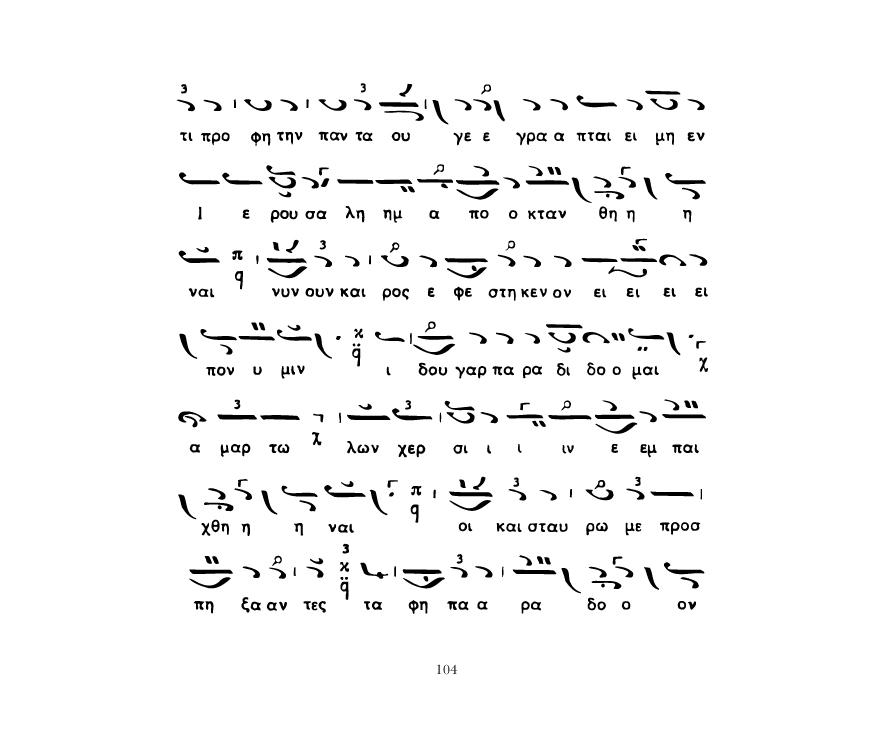 τι προ φη την παν τα ου γε ε γρα α πται ει μη εν
Ι ε ρου σα λη ημ α πο ο κταν θη η η
ναι π q νυν ουν και ρος ε φε στη κεν ον ει ει ει ει
πον υ μιν ϰ q̈ ι δου γαρ πα ρα δι δο ο μαι χ
α μαρ τω χ λων χερ σι ι ι ιν ε εμ παι
χθη η η ναι π q οι και σταυ ρω με προσ
πη ξα αν τες ϰ q̈ τα φη πα α ρα δο ο ον
104